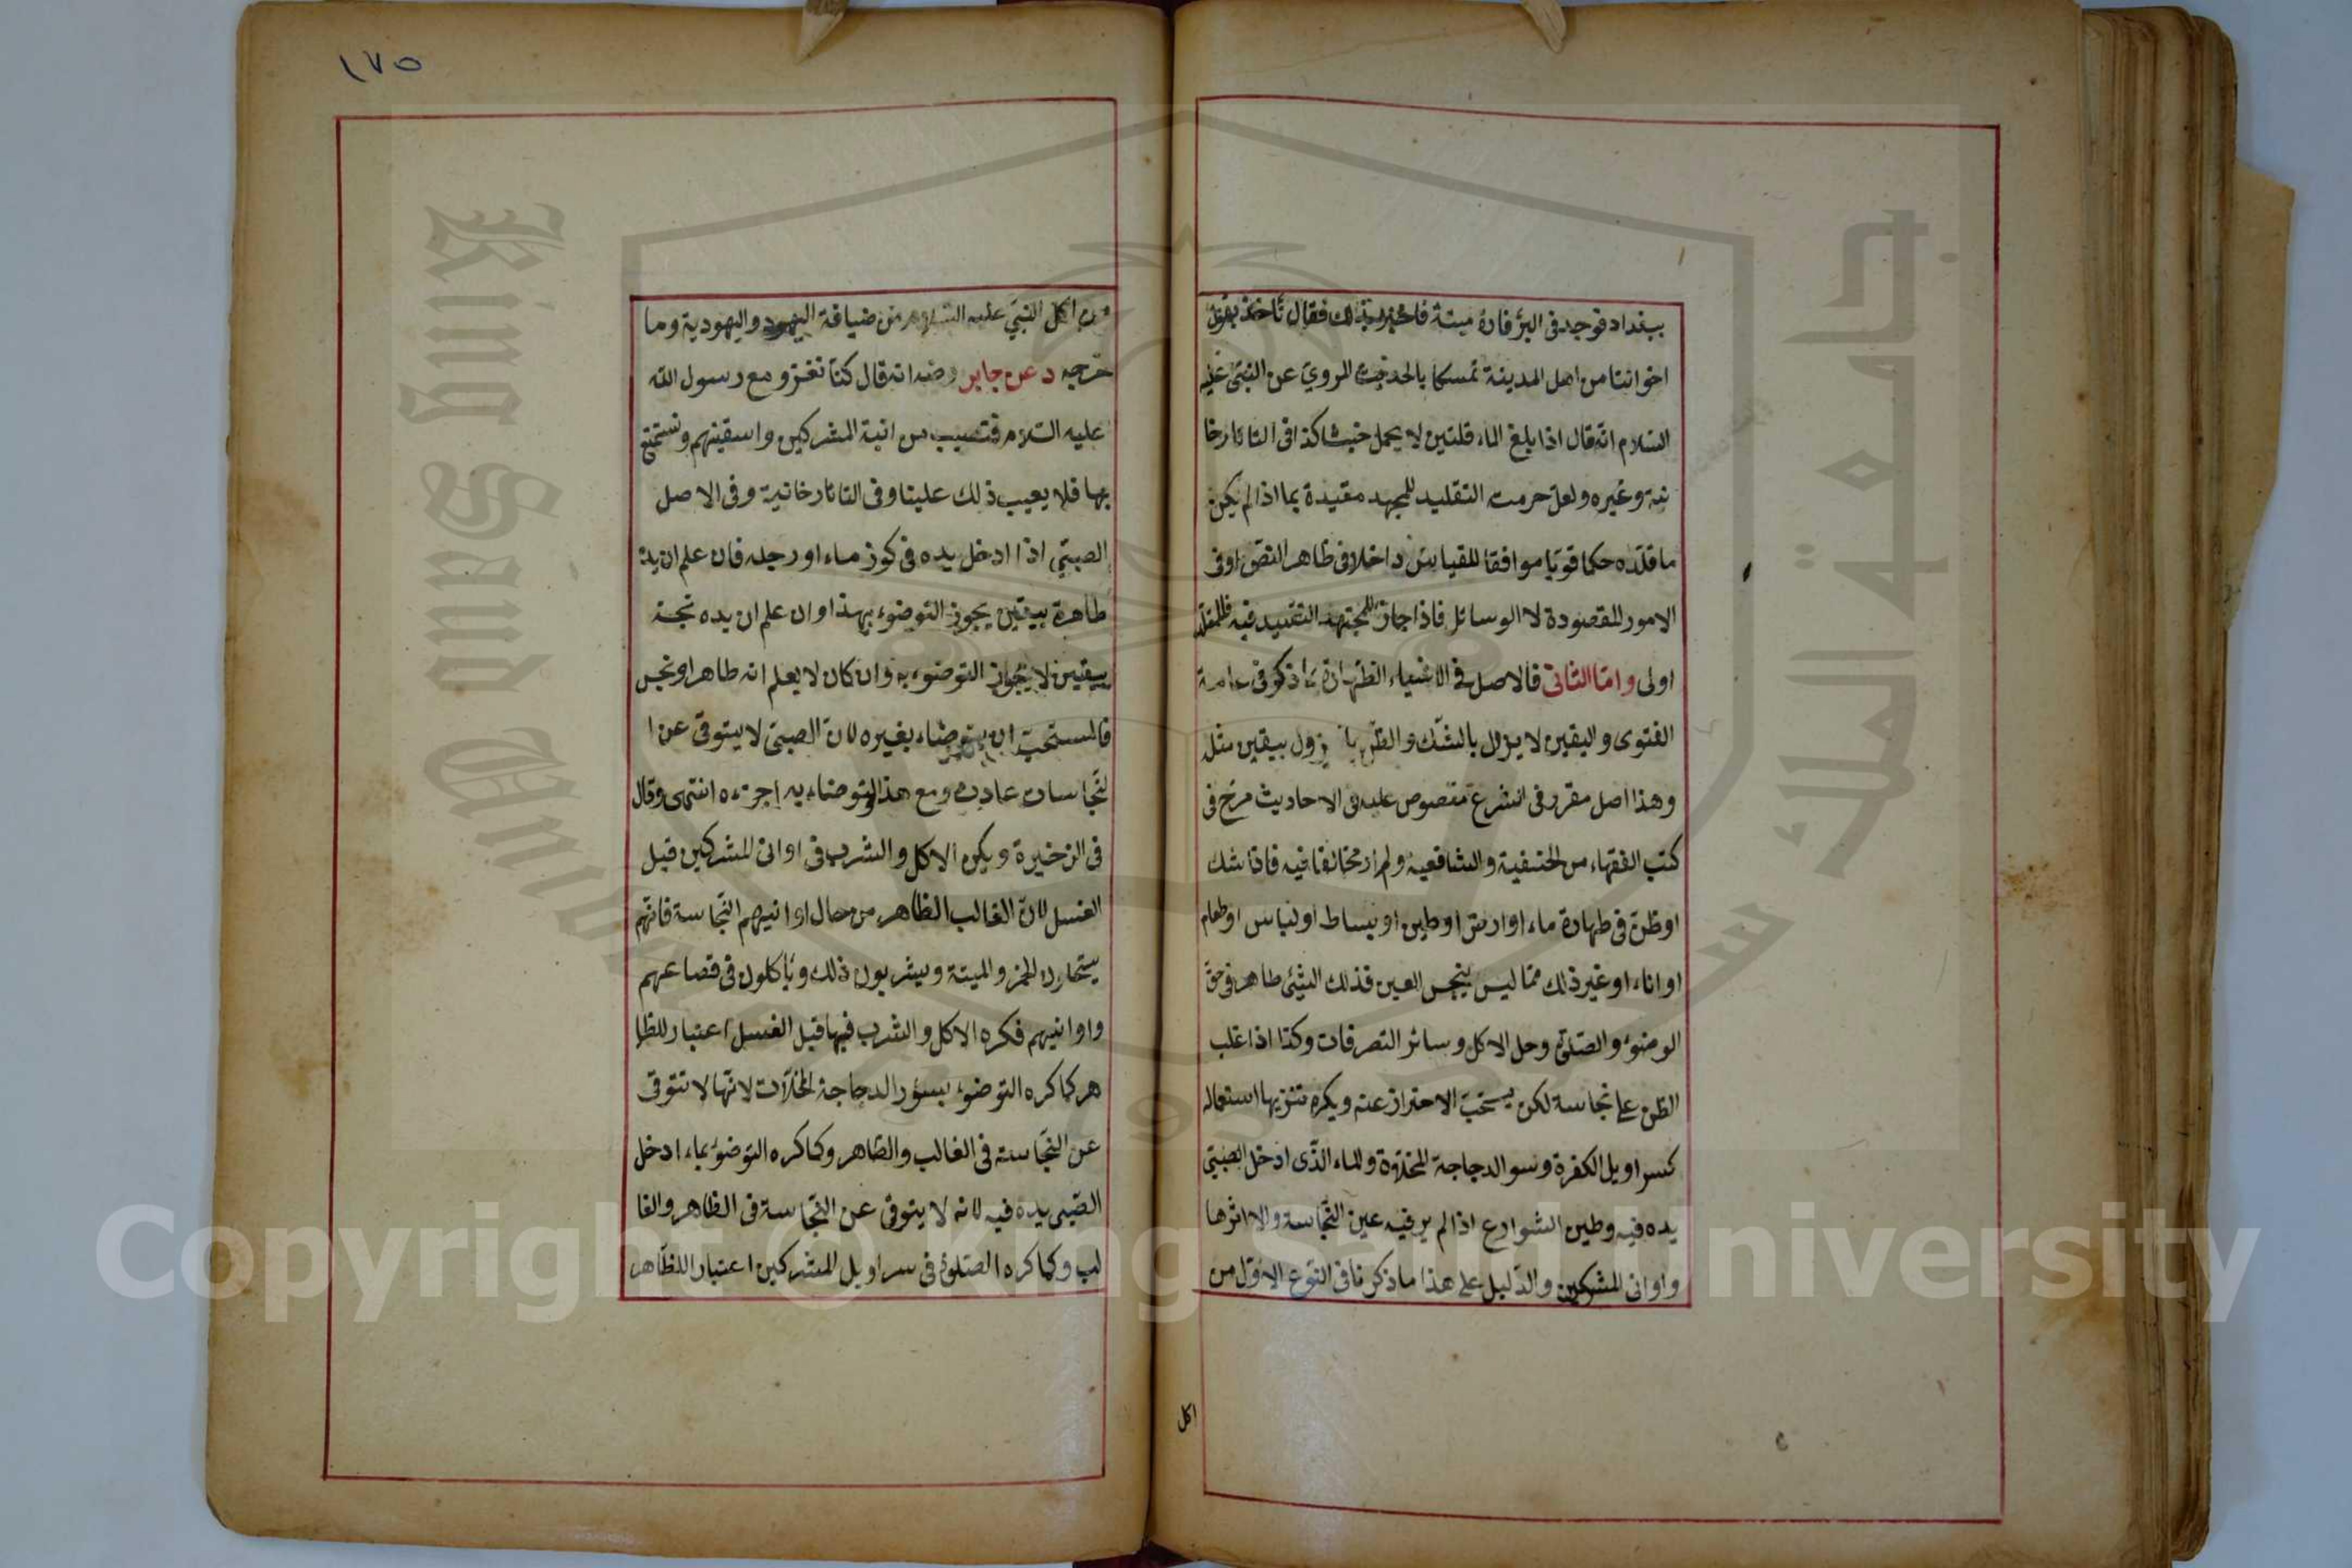 ببغداد فوجد في البئر فارة ميتة فاخبر بذلك فقال ناخذ بقول
اخواننا من اهل المدينة تمسكا بالحديث المروي عن النبي عليه
السلام انه قال اذا بلغ الماء قلتين لا يحمل خبثا كذا في التاتارخا
نية وغيره ولعل حرمت التقليد للمجهد مقيدة بما اذا لم يكن
ما قلده حكما قويا موافقا للقياس داخلا في ظاهر النص او في
الامور المقصودة لا الوسائل فاذا جاز للمجتهد التقييد فيه فللمقلد
اولى واما الثاني فالاصل في الاشياء الطهارة لما ذكر في عامة
الفتوى واليقين لا يزول بالشك والظن يزول بيقين مثله
وهذا اصل مقرر في الشرع منصوص عليه في الاحاديث مصرح في
كتب الفقهاء من الحنفية والشافعية ولم ار مخالفا فيه فاذا شك
او ظن في طهارة ماء او ارض او طين او بساط او لباس او طعام
او اناء او غير ذلك مما ليس بنجس العين فذلك الشئ طاهر في حق
الوضوء والصلوة وحل الاكل وسائر التصرفات وكذا اذا غلب
الظن على نجاسة لكن يستحب الاحتراز عنه ويكره تنزيها استعماله
كسراويل الكفرة وسؤر الدجاجة المخلاة والماء الذى ادخل الصبي
يده فيه وطين الشوارع اذا لم ير فيه عين النجاسة والا اثرها
واواني المشركين والدليل على هذا ما ذكرنا في النوع الاول من
اكل
١٧٥
من اكل النبي عليه السلام من ضيافة اليهود واليهودية وما
خرجه د عن جابر رضه انه قال كنا نغزو مع رسول الله
عليه السلام فنصيب من انية المشركين واسقيتهم ونستمتع
بها فلا يعيب ذلك علينا وفى التاتارخانية وفى الاصل
الصبي اذا ادخل يده فى كوز ماء او رجله فان علم ان يده
طاهرة بيقين يجوز التوضوء بهذا وان علم ان يده نجسة
بيقين لا يجوز التوضوء به وان كان لا يعلم انه طاهر او نجس
فالمستحب ان يتوضاء بغيره لان الصبى لا يتوقى عن ا
لنجاسات عادة ومع هذا لو توضاء به اجزءه انتهى وقال
فى الذخيرة ويكره الاكل والشرب فى اوانى المشركين قبل
الغسل لان الغالب الظاهر من حال اوانيهم النجاسة فانهم
يستحلون الخمر والميتة ويشربون ذلك وياكلون فى قصاعهم
واوانيهم فكره الاكل والشرب فيها قبل الغسل اعتبار للظا
هر كما كره التوضوء بسؤر الدجاجة المخلات لانها لا تتوقى
عن النجاسة فى الغالب والظاهر وكما كره التوضوء بماء ادخل
الصبى يده فيه لانه لا يتوقى عن النجاسة فى الظاهر والغا
لب وكما كره الصلوة فى سراويل المشركين اعتبارا للظاهر
جامعة الملك سعود
King Saud University
Copyright © King Saud University